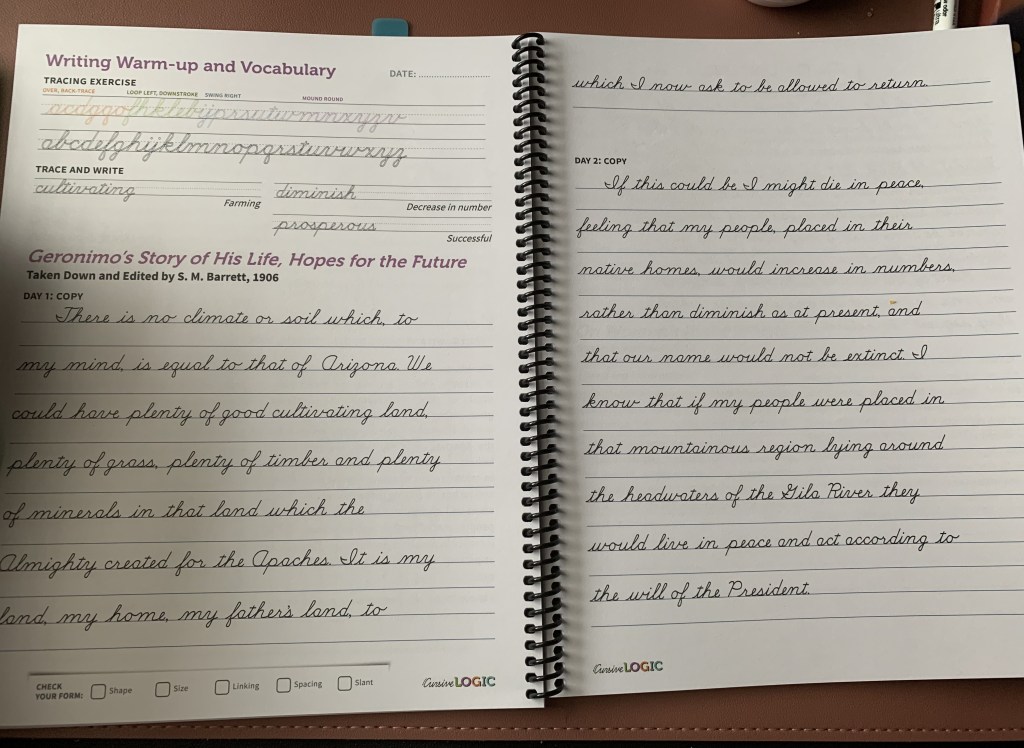 Writing Warm-up and Vocabulary
DATE:
TRACING EXERCISE
OVER, BACK TRACE LOOP LEFT, DOWNSTROKE SWING RIGHT MOUND ROUND
acdgqofhklebijprsutwmnxyzv
abcdefghijklmnopqrstuvwxyz
TRACE AND WRITE
cultivating
Farming
diminish
Decrease in number
prosperous
Successful
Geronimo's Story of His Life, Hopes for the Future
Taken Down and Edited by S. M. Barrett, 1906
DAY 1: COPY
There is no climate or soil which, to
my mind, is equal to that of Arizona. We
could have plenty of good cultivating land,
plenty of grass, plenty of timber and plenty
of minerals in that land which the
Almighty created for the Apaches. It is my
land, my home, my father's land, to
CHECK YOUR FORM:
Shape
Size
Linking
Spacing
Slant
CursiveLOGIC
which I now ask to be allowed to return.
DAY 2: COPY
If this could be I might die in peace,
feeling that my people, placed in their
native homes, would increase in numbers,
rather than diminish as at present, and
that our name would not be extinct. I
know that if my people were placed in
that mountainous region lying around
the headwaters of the Gila River they
would live in peace and act according to
the will of the President.
CursiveLOGIC